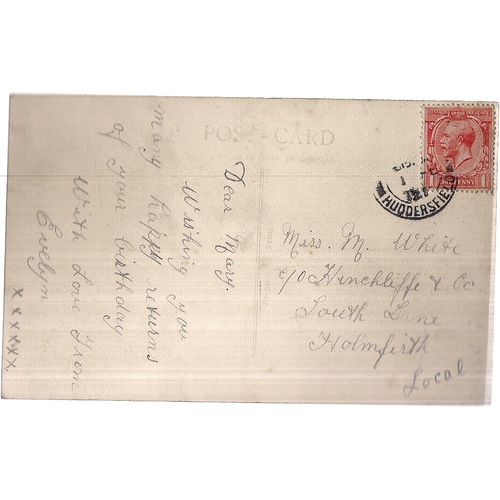 POST CARD
Dear Mary.
Wishing you
many happy returns
of your birthday
With Love From
Evelyn
xxxxxx
Miss. M. White
c/o Hinchliffe & Co.
South Lane
Holmfirth
Local
HUDDERSFIELD
1 PENNY 1